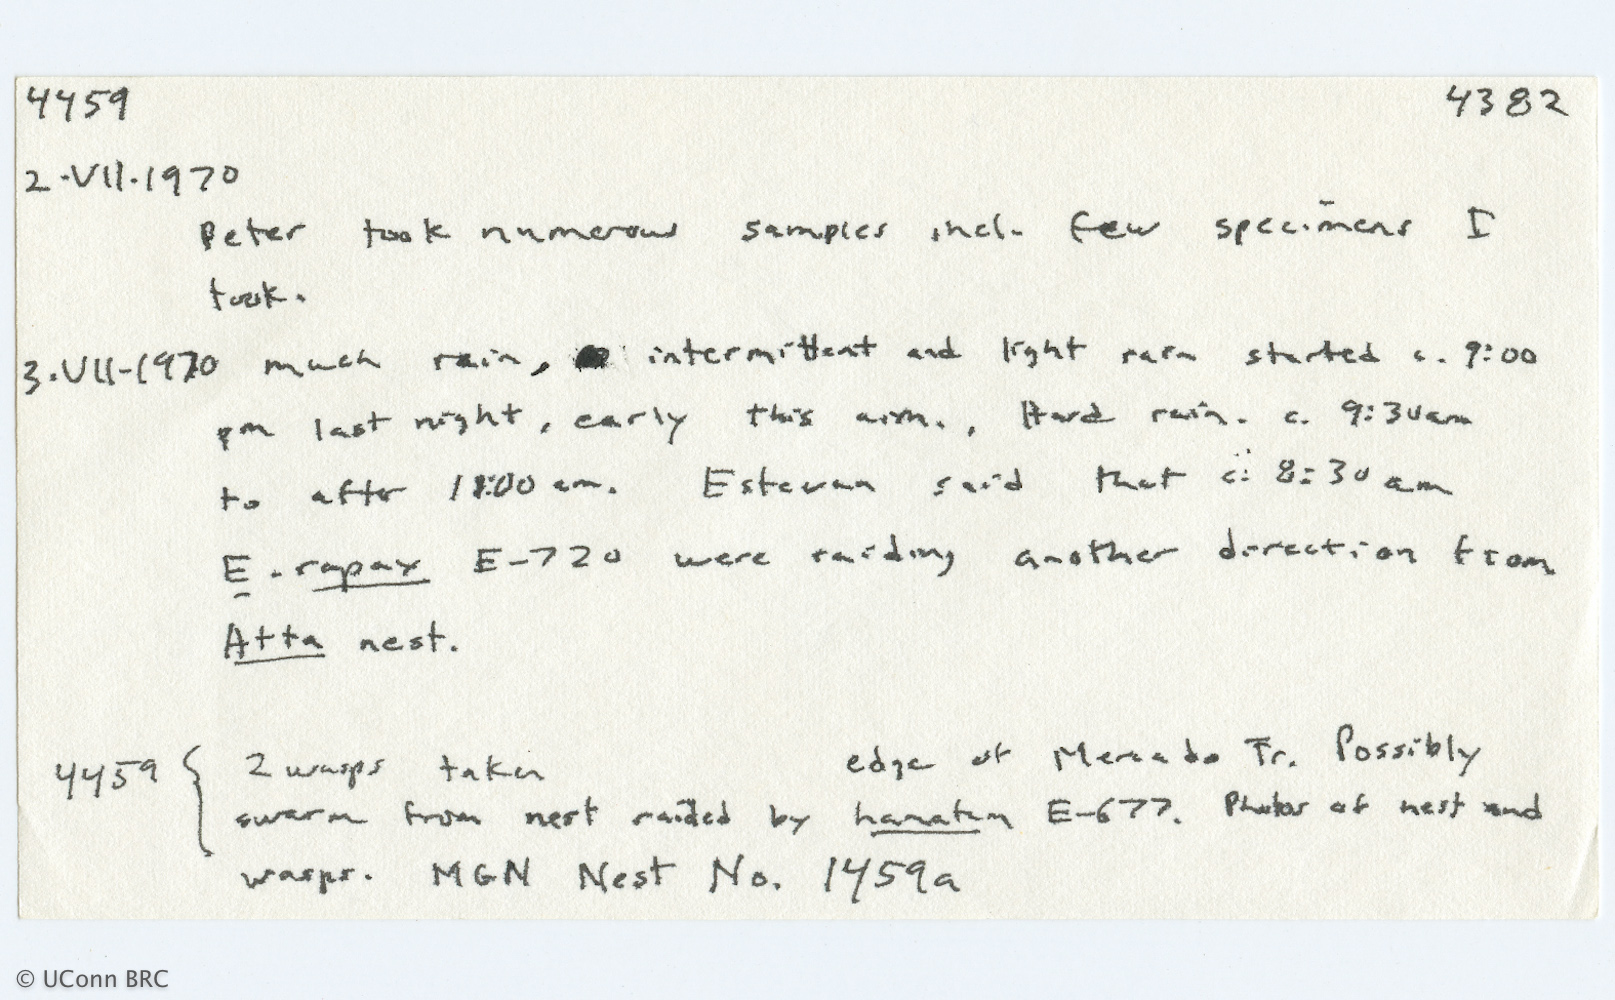 4459 4382
2·VII·1970
Peter took numerous samples incl. few specimens I
took.
3·VII-1970 much rain, intermittent and light rain started c. 9:00
pm last night, early this a.m., Hard rain. c. 9:30am
to after 11:00 am. Estevan said that c. 8:30 am
E. rapax E-720 were raiding another direction from
Atta nest.
4459 { 2 wasps taken edge of Mercado Tr. Possibly
swarm from nest raided by hamatum E-677. Photos of nest and
wasps. MGN Nest No. 1459a
© UConn BRC